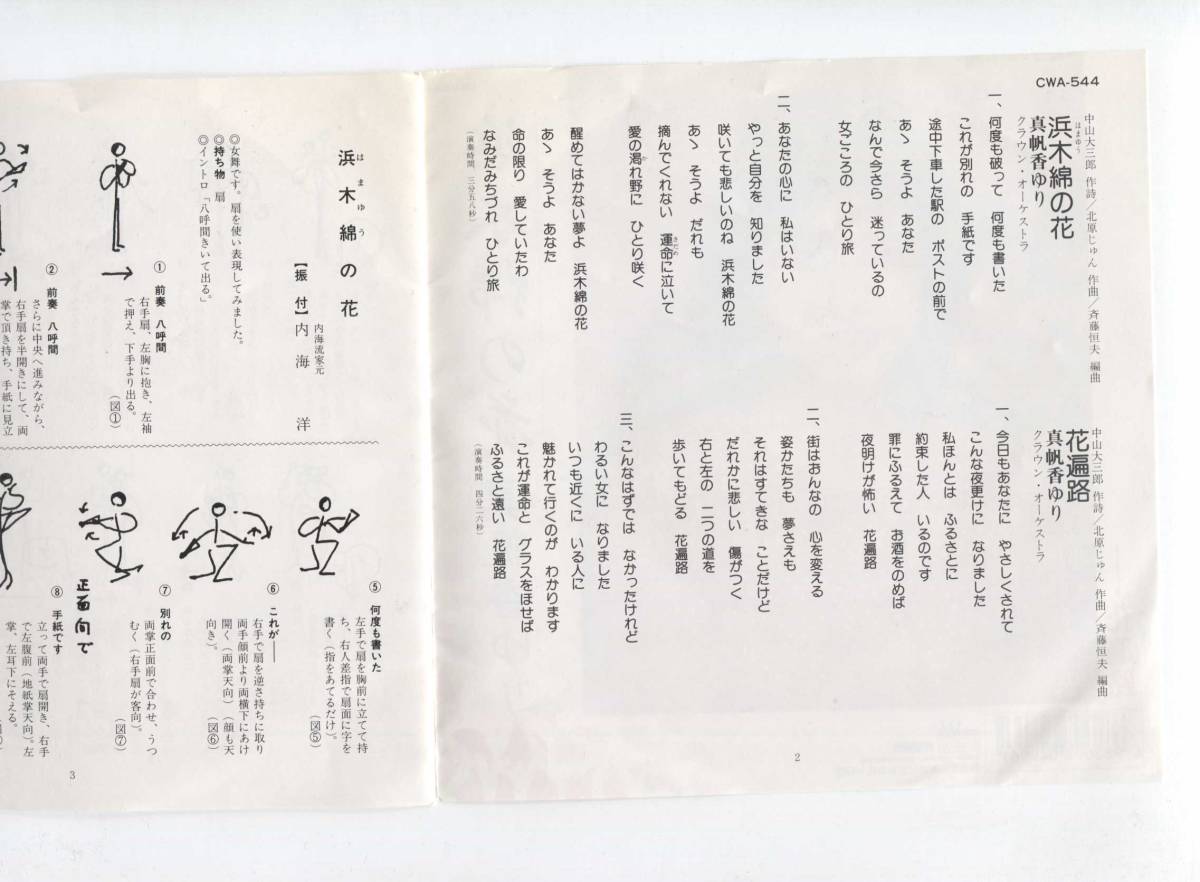 CWA-544
中山大三郎 作詩／北原じゅん 作曲／斉藤恒夫 編曲
浜木綿の花
はまゆう
真帆香ゆり
クラウン・オーケストラ
一、何度も破って 何度も書いた
これが別れの 手紙です
途中下車した駅の ポストの前で
あゝ そうよ あなた
なんで今さら 迷っているの
女ごころの ひとり旅
二、あなたの心に 私はいない
やっと自分を 知りました
咲いても悲しいのね 浜木綿の花
あゝ そうよ だれも
摘んでくれない 運命に泣いて
さだめ
愛の渇れ野に ひとり咲く
か
醒めてはかない夢よ 浜木綿の花
あゝ そうよ あなた
命の限り 愛していたわ
なみだみちづれ ひとり旅
（演奏時間 三分五八秒）
中山大三郎 作詩／北原じゅん 作曲／斉藤恒夫 編曲
花遍路
真帆香ゆり
クラウン・オーケストラ
一、今日もあなたに やさしくされて
こんな夜更けに なりました
私ほんとは ふるさとに
約束した人 いるのです
罪にふるえて お酒をのめば
夜明けが怖い 花遍路
二、街はおんなの 心を変える
姿かたちも 夢さえも
それはすてきな ことだけど
だれかに悲しい 傷がつく
右と左の 二つの道を
歩いてもどる 花遍路
三、こんなはずでは なかったけれど
わるい女に なりました
いつも近くに いる人に
魅かれて行くのが わかります
これが運命と グラスをほせば
ふるさと遠い 花遍路
（演奏時間 四分二六秒）
2
浜木綿の花
はまゆう
内海流家元
【振付】内海 洋
◎女舞です。扇を使い表現してみました。
◎持ち物 扇
◎イントロ「八呼間きいて出る。」
① 前奏 八呼間
右手扇、左胸に抱き、左袖
で押え、下手より出る。
（図①）
② 前奏 八呼間
さらに中央へ進みながら、
右手扇を半開きにして、両
掌で頂き持ち、手紙に見立
⑤ 何度も書いた
左手で扇を胸前に立てて持
ち、右人差指で扇面に字を
書く（指をあてるだけ）。
（図⑤）
⑥ これが――
右手で扇を逆さ持ちに取り
両手顔前より両横下にあけ
開く（両掌天向）（顔も天
向き）。
（図⑥）
⑦ 別れの
両掌正面前で合わせ、うつ
むく（右手扇が客向）。
（図⑦）
正面向で
⑧ 手紙です
立って両手で扇開き、右手
で左腹前（地紙掌天向）。左
掌、左耳下にそえる。
3